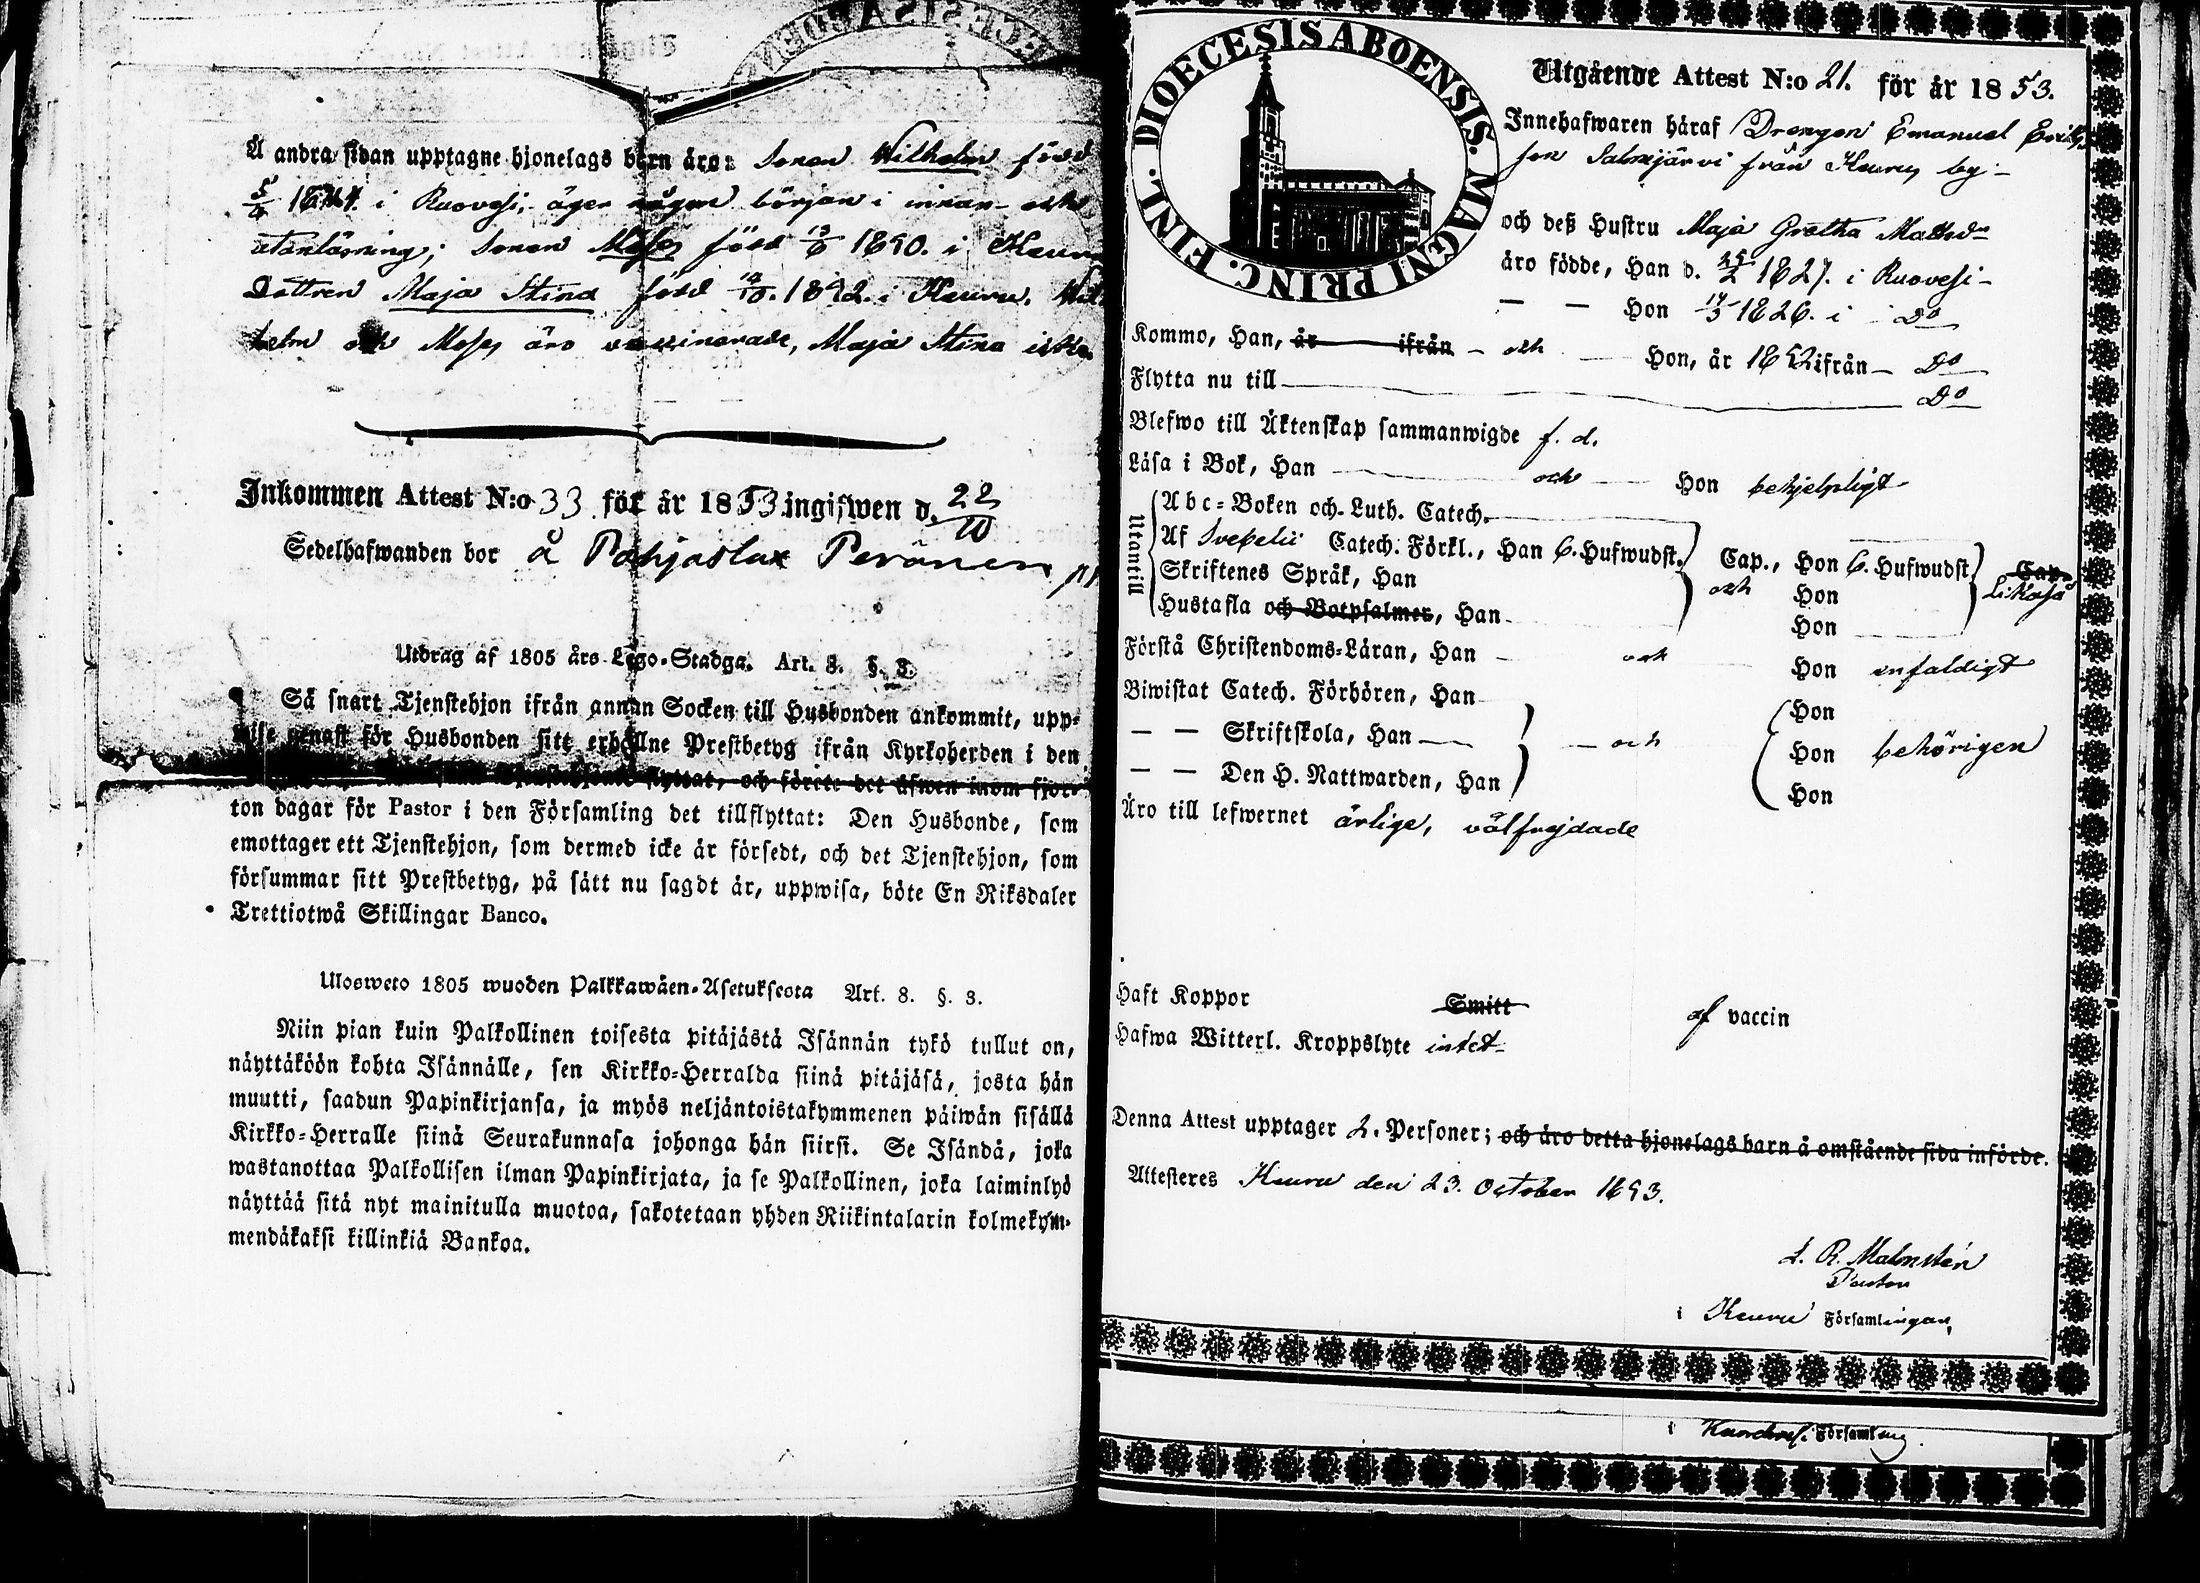 Å andra sidan upptagne hjonelags barn äro: Sonen Wilhelm född
i Ruovesi, äger någon början i innan- och
utanläsning; Sonen Moses född 1850. i Keuru
Dottren Maja Stina född 1852. i Keuru. Wil-
helm och Moses äro vaccinerade, Maja Stina icke.
Inkommen Attest N:o 33 för år 1853 ingifwen d. 22/10
Sedelhafwanden bor å Pohjaslax Peränen
Utdrag af 1805 års Lego-Stadga. Art. 8. §. 3.
Så snart Tjenstehjon ifrån annan Socken till Husbonden ankommit, upp-
wise genast för Husbonden sitt erhållne Prestbetyg ifrån Kyrkoherden i den
flyttat, och förete det äfwen inom fjor-
ton dagar för Pastor i den Församling det tillflyttat: Den Husbonde, som
emottager ett Tjenstehjon, som dermed icke är försedt, och det Tjenstehjon, som
försummar sitt Prestbetyg, på sätt nu sagdt är, uppwisa, böte En Riksdaler
Trettiotwå Skillingar Banco.
Ulosweto 1805 wuoden Palkkawäen-Asetuksesta Art. 8. §. 3.
Niin pian kuin Palkollinen toisesta pitäjästä Isännän tykö tullut on,
näyttäköön kohta Isännälle, sen Kirkko-Herralda siinä pitäjäsä, josta hän
muutti, saadun Papinkirjansa, ja myös neljäntoistakymmenen päiwän sisällä
Kirkko-Herralle siinä Seurakunnasa johonga hän siirsi. Se Isändä, joka
wastanottaa Palkollisen ilman Papinkirjata, ja se Palkollinen, joka laiminlyö
näyttää sitä nyt mainitulla muotoa, sakotetaan yhden Riikintalarin kolmekym-
mendäkaksi killinkiä Bankoa.
DIOECESIS ABOENSIS. MAGNI PRINC. FINL.
Utgående Attest N:o 21. för år 1853.
Innehafwaren häraf Drengen Emanuel Eriks
son Salmijärvi från Keuru by-
och deß Hustru Maja Gretha Mattsdr
äro födde, Han d. 25/2 1827. i Ruovesi-
— — Hon 17/3 1826. i Do
Kommo, Han, år ifrån - och Hon, år 1852 ifrån - Do
Flytta nu till Do
Blefwo till Äktenskap sammanwigde f. d.
Läsa i Bok, Han och Hon behjelpligt
Utantill
Abc-Boken och Luth. Catech.
Af Svebelii Catech. Förkl., Han 6. Hufwudst. Cap., Hon 6. Hufwudst. Cap. likaså
Skriftenes Språk, Han och Hon
Hustafla och Botpsalmer, Han Hon
Förstå Christendoms-Läran, Han och Hon enfaldigt
Biwistat Catech. Förhören, Han Hon
— — Skriftskola, Han — och Hon behörigen
— — Den H. Nattwarden, Han Hon
Äro till lefwernet ärlige, välfrejdade
Haft Koppor Smitt af vaccin
Hafwa Witterl. Kroppslyte intet-
Denna Attest upptager 2. Personer; och äro detta hjonelags barn å omstående sida införde.
Attesteres Keuru den 23. October 1853.
L. R. Malmstén
Pastor
i Keuru Församlingar,
i Församling.